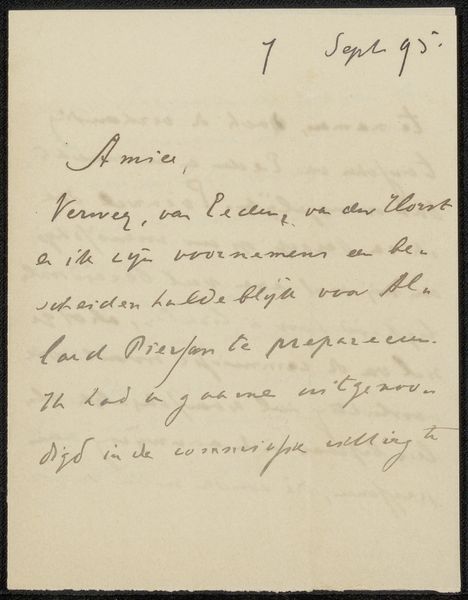 7 Sept 95.
Amice,
Verwey, van Eeden, van der Horst
en ik zijn voornemens een be-
scheiden huldeblijk voor Al-
lard Pierson te prepareeren.
Ik had u gaarne uitgenoo-
digd in de commissie zitting te